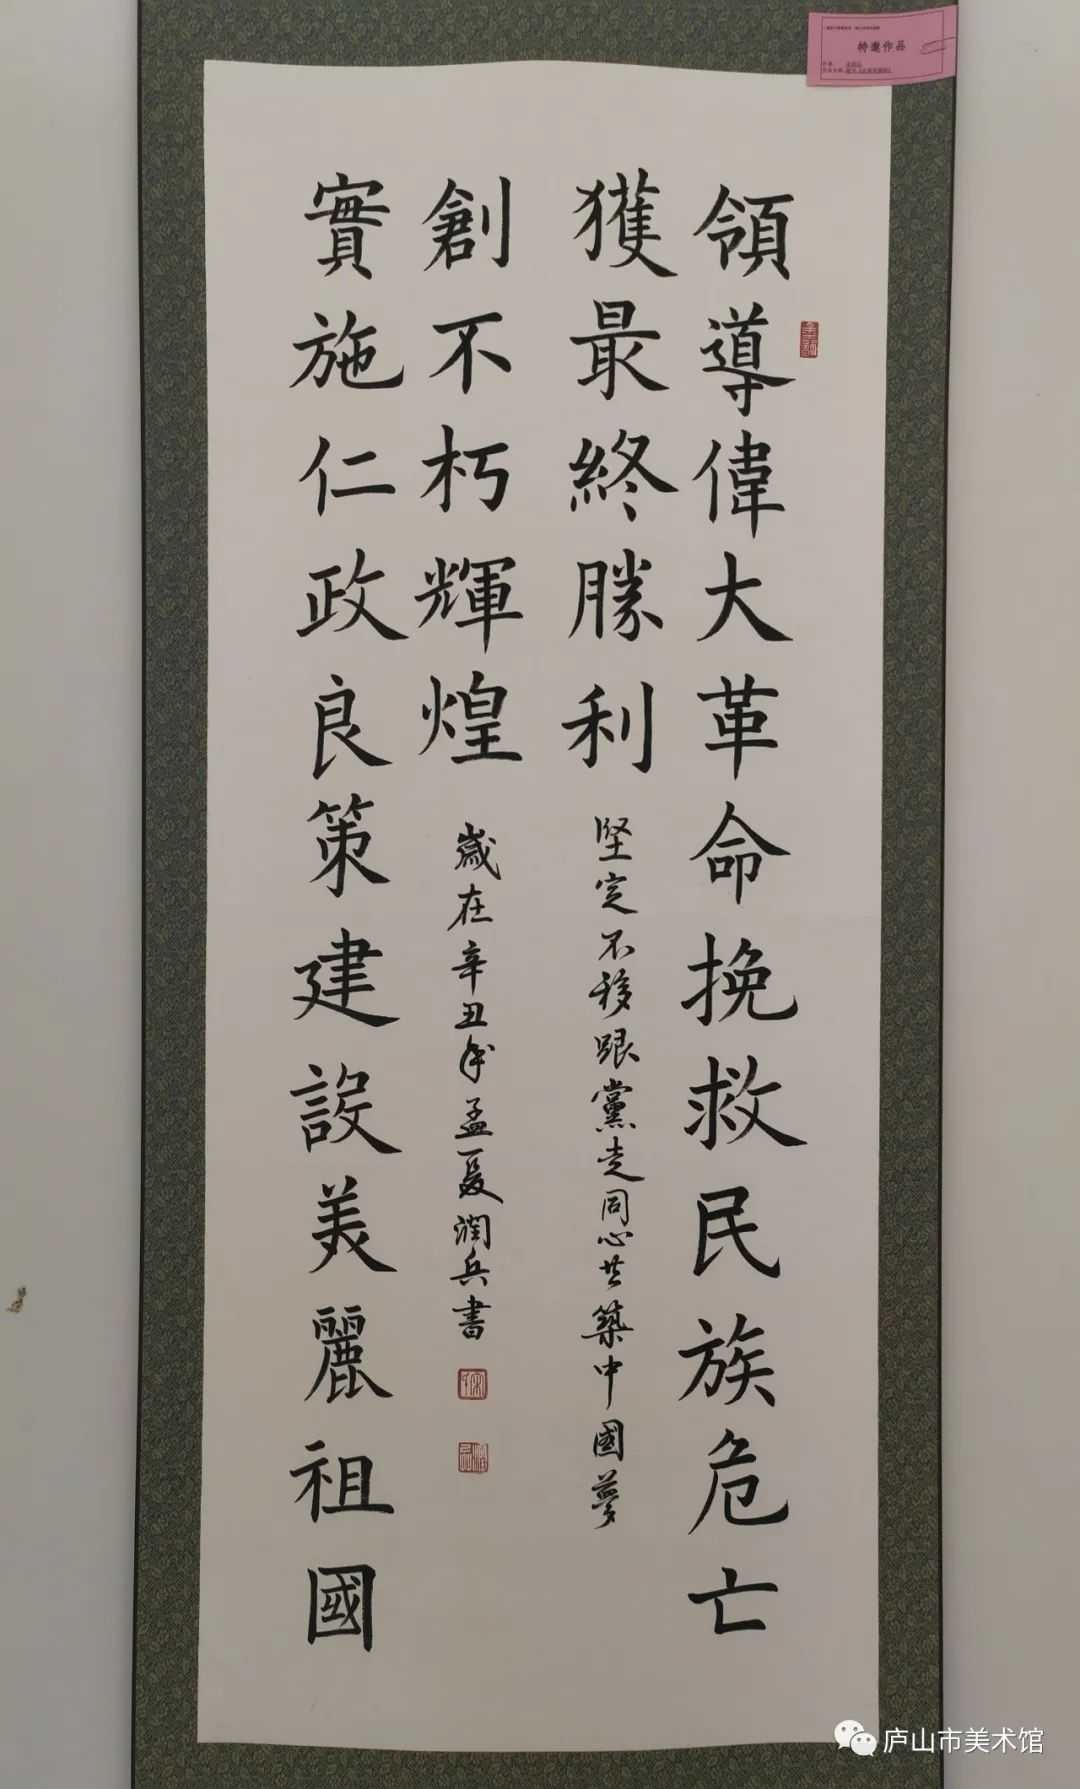 特邀作品
領導偉大革命挽救民族危亡
獲最終勝利
堅定不移跟黨走同心共築中國夢
實施仁政良策建設美麗祖國
創不朽輝煌
歲在辛丑年孟夏潤兵書
庐山市美术馆